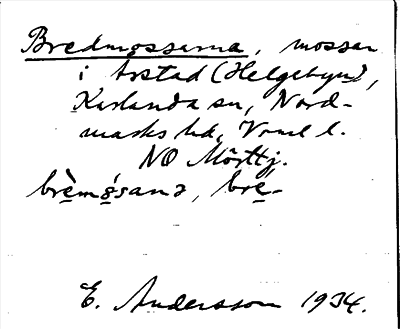 Bredmossarna, mossar
i Årstad (Helgebyn),
Karlanda sn, Nord-
marks hd, Vrml l.
NO Mörttj.
brèmósana, bré-
E. Andersson 1934.